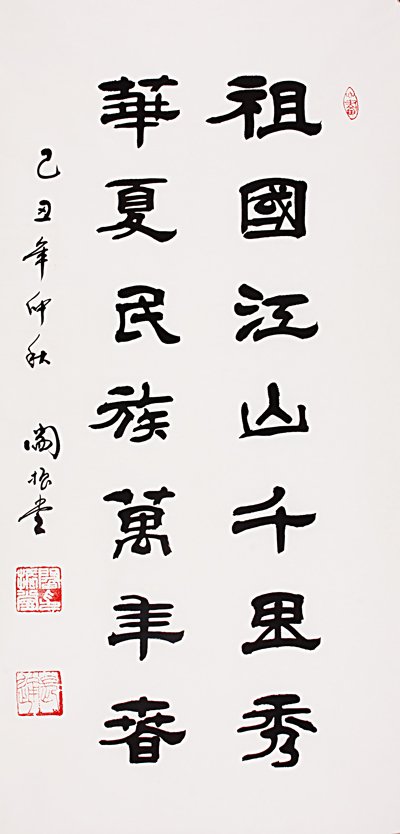 祖國江山千里秀
華夏民族萬年春
己丑年仲秋